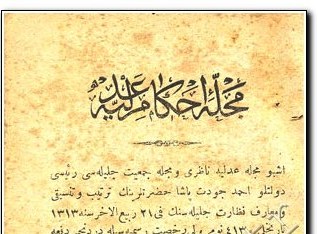 مجله احکام عدلیه
اشبو مجله عدلیه ناظری و مجله جمعیت جلیله‌سی رئیسی
دولتلو احمد جودت پاشا حضرتلرینك ترتیب و تنسیقی
و معارف نظارت جلیله‌سنك فی ٢١ ربیع الاخر سنه ١٣١٣
رخصت رسمیه‌سیله دفعه